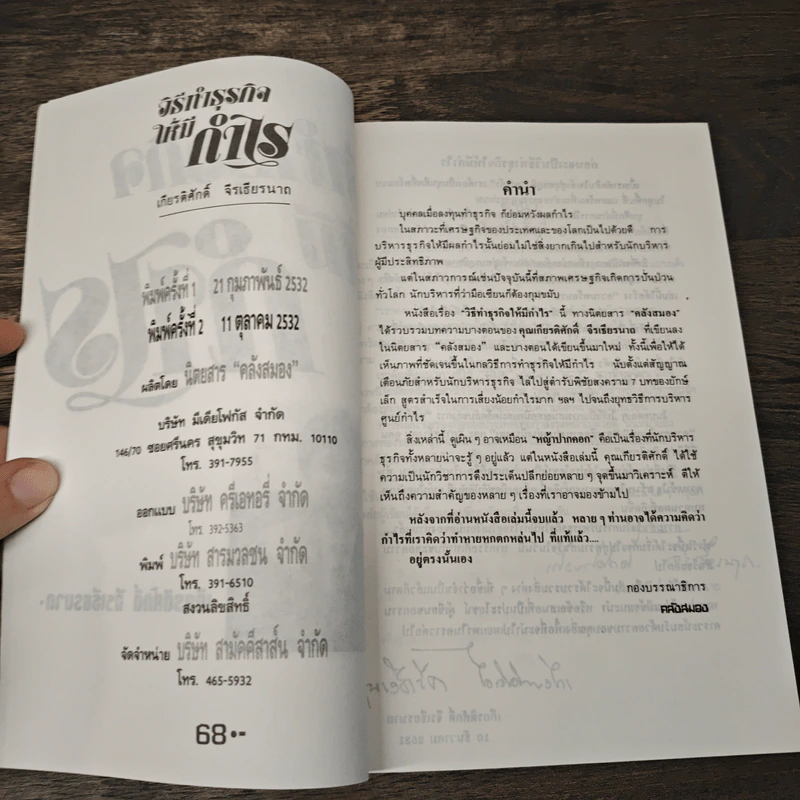 วิธีทำธุรกิจ
ให้มี กำไร
เกียรติศักดิ์ จีรเธียรนาถ
พิมพ์ครั้งที่ 1 21 กุมภาพันธ์ 2532
พิมพ์ครั้งที่ 2 11 ตุลาคม 2532
ผลิตโดย นิตยสาร "คลังสมอง"
บริษัท มีเดียโฟกัส จำกัด
146/70 ซอยศรีนคร สุขุมวิท 71 กทม. 10110
โทร. 391-7955
ออกแบบ บริษัท ครีเอทอรี่ จำกัด
โทร. 392-5363
พิมพ์ บริษัท สารมวลชน จำกัด
โทร. 391-6510
สงวนลิขสิทธิ์
จัดจำหน่าย บริษัท สามัคคีสาส์น จำกัด
โทร. 465-5932
68.-
คำนำ
บุคคลเมื่อลงทุนทำธุรกิจ ก็ย่อมหวังผลกำไร
ในสภาวะที่เศรษฐกิจของประเทศและของโลกเป็นไปด้วยดี การ
บริหารธุรกิจให้มีผลกำไรนั้นย่อมไม่ใช่สิ่งยากเกินไปสำหรับนักบริหาร
ผู้มีประสิทธิภาพ
แต่ในสภาวการณ์เช่นปัจจุบันนี้ที่สภาพเศรษฐกิจเกิดการปั่นป่วน
ทั่วโลก นักบริหารที่ว่ามือเซียนก็ต้องกุมขมับ
หนังสือเรื่อง "วิธีทำธุรกิจให้มีกำไร" นี้ ทางนิตยสาร "คลังสมอง"
ได้รวบรวมบทความบางตอนของคุณเกียรติศักดิ์ จีรเธียรนาถ ที่เขียนลง
ในนิตยสาร "คลังสมอง" และบางตอนได้เขียนขึ้นมาใหม่ ทั้งนี้เพื่อให้ได้
เห็นภาพที่ชัดเจนขึ้นในกลวิธีการทำธุรกิจให้มีกำไร นับตั้งแต่สัญญาณ
เตือนภัยสำหรับนักบริหารธุรกิจ ไล่ไปสู่ตำรับพิชัยสงคราม 7 บทของยักษ์
เล็ก สูตรสำเร็จในการเสี่ยงน้อยกำไรมาก ฯลฯ ไปจนถึงยุทธวิธีการบริหาร
ศูนย์กำไร
สิ่งเหล่านี้ ดูเผิน ๆ อาจเหมือน "หญ้าปากคอก" คือเป็นเรื่องที่นักบริหาร
ธุรกิจทั้งหลายน่าจะรู้ ๆ อยู่แล้ว แต่ในหนังสือเล่มนี้ คุณเกียรติศักดิ์ ได้ใช้
ความเป็นนักวิชาการดึงประเด็นปลีกย่อยหลาย ๆ จุดขึ้นมาวิเคราะห์ ตีให้
เห็นถึงความสำคัญของหลาย ๆ เรื่องที่เราอาจมองข้ามไป
หลังจากที่อ่านหนังสือเล่มนี้จบแล้ว หลาย ๆ ท่านอาจได้ความคิดว่า
กำไรที่เราคิดว่าทำหายหกตกหล่นไป ที่แท้แล้ว....
อยู่ตรงนั้นเอง
กองบรรณาธิการ
คลังสมอง